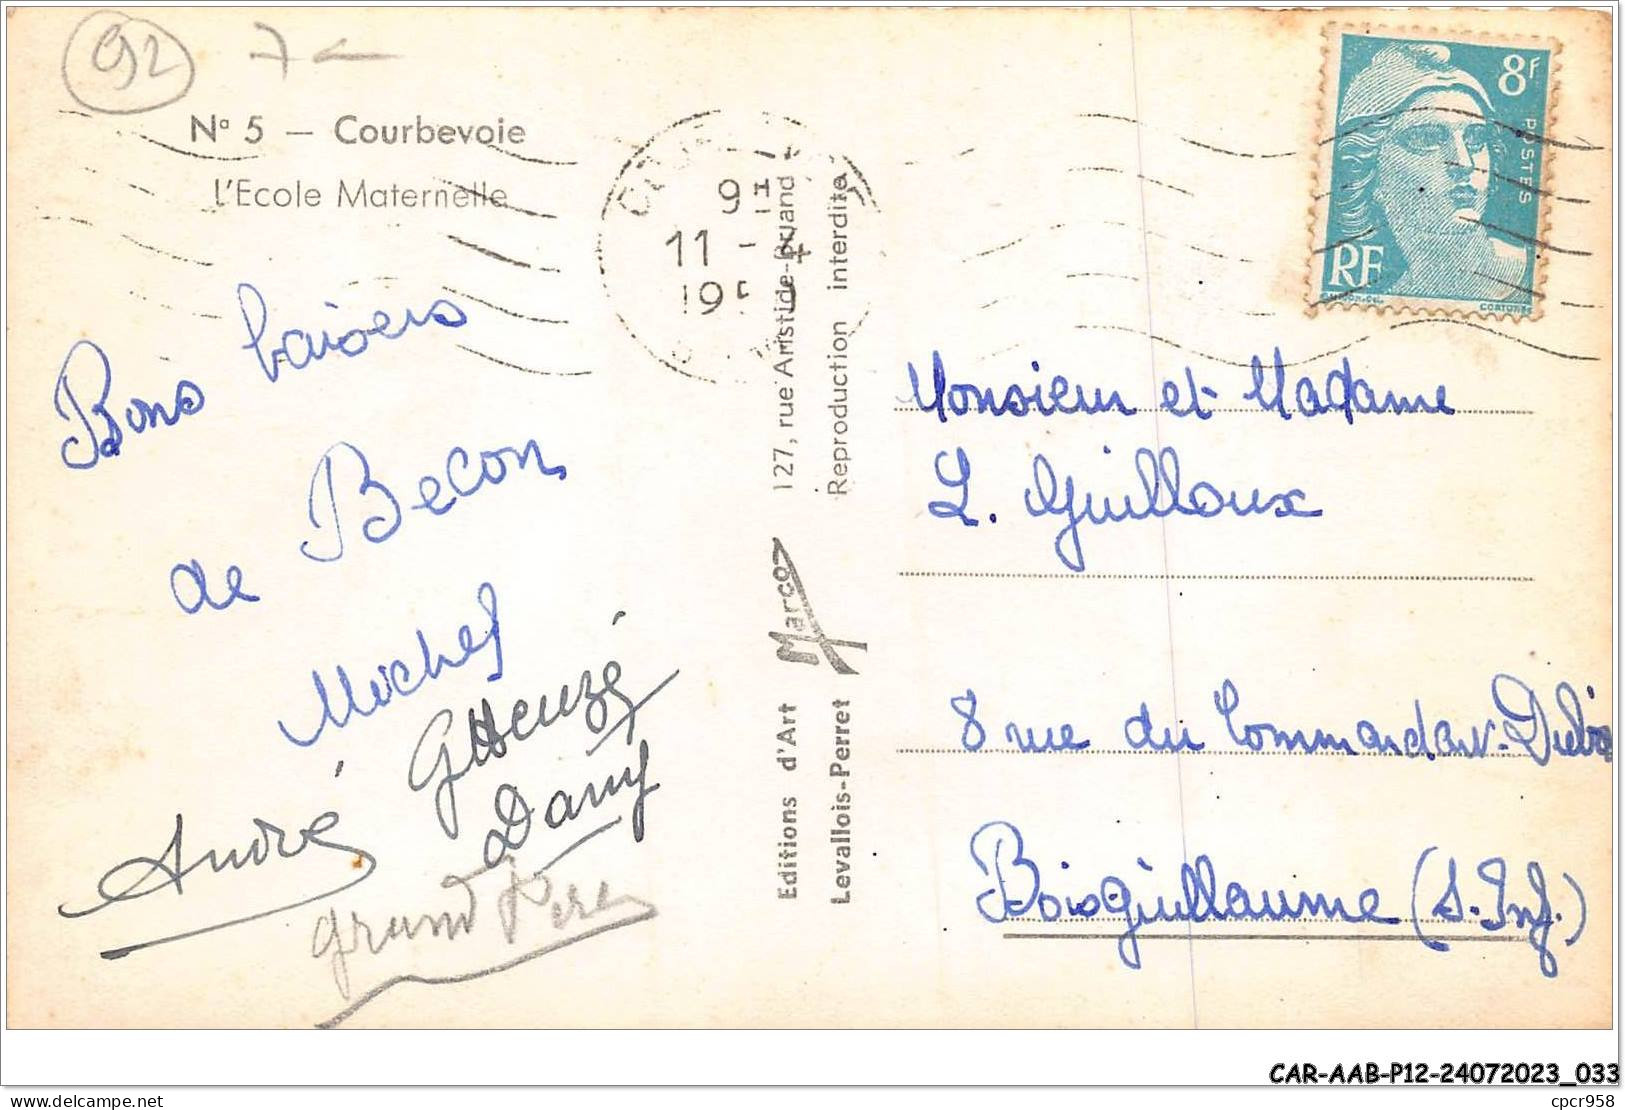 92
7
N° 5 — Courbevoie
L'Ecole Maternelle
Bons baisers
de Becon
Michel
GHeuzé
André
Dany
grand Père
9
11 - 4
195
127, rue Aristide-Briand
Reproduction interdite
Marco
Editions d'Art
Levallois-Perret
8F
POSTES
RF
GANDON-DEL.
CORTOT-SC
Monsieur et Madame
L. Guilloux
8 rue du Commandant-Dubois
Boisguillaume (S. Inf.)
CAR-AAB-P12-24072023_033
delcampe.net
cpcr958